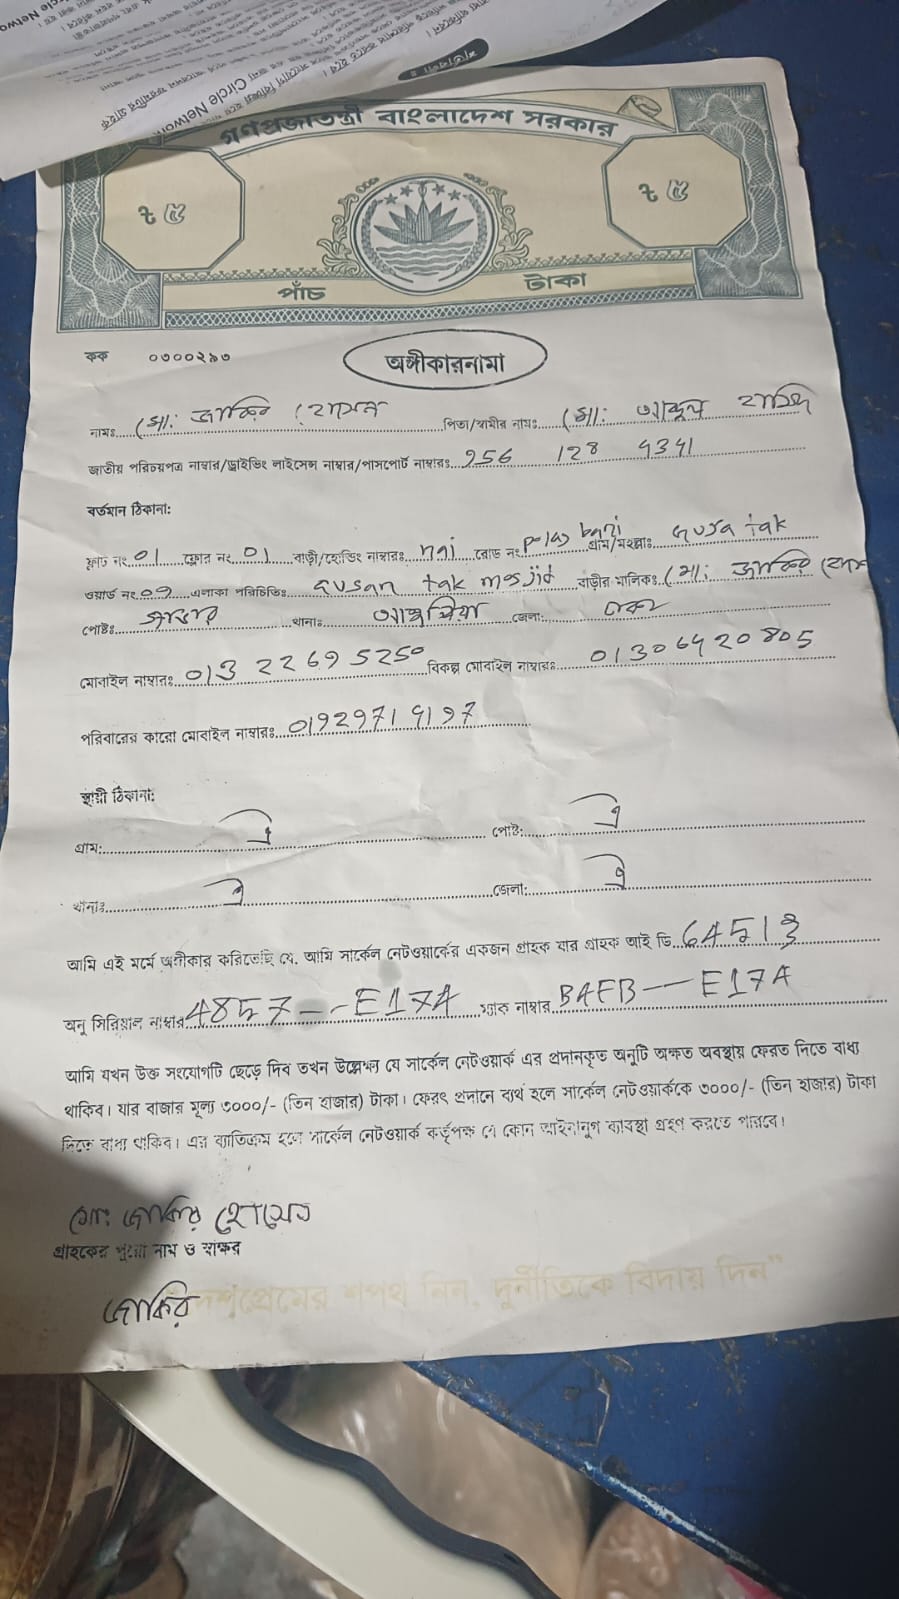 Circle Network
গণপ্রজাতন্ত্রী বাংলাদেশ সরকার
৳ ৫ ৳ ৫
পাঁচ টাকা
কক ০৩০০২৯৩
অঙ্গীকারনামা
নামঃ মো: জাকির হোসেন পিতা/স্বামীর নামঃ মো:
জাতীয় পরিচয়পত্র নাম্বার/ড্রাইভিং লাইসেন্স নাম্বার/পাসপোর্ট নাম্বারঃ 956 128 4341
বর্তমান ঠিকানা:
ফ্লাট নং 01 ফ্লোর নং 01 বাড়ী/হোল্ডিং নাম্বারঃ nai রোড নং polas bari গ্রাম/মহল্লাঃ Gusa tak
ওয়ার্ড নং 09 এলাকা পরিচিতিঃ Gusan tak mosjid বাড়ীর মালিকঃ মো: জাকির হোসেন
পোষ্টঃ সাভার থানাঃ আশুলিয়া জেলা: ঢাকা
মোবাইল নাম্বারঃ 01322695250 বিকল্প মোবাইল নাম্বারঃ 01306420805
পরিবারের কারো মোবাইল নাম্বারঃ 01929714197
স্থায়ী ঠিকানা:
গ্রাম: ঐ পোষ্ট: ঐ
থানাঃ ঐ জেলা: ঐ
আমি এই মর্মে অঙ্গীকার করিতেছি যে, আমি সার্কেল নেটওয়ার্কের একজন গ্রাহক যার গ্রাহক আই ডি 64513
অনু সিরিয়াল নাম্বার 4857--E17A ম্যাক নাম্বার BAFB--E17A
আমি যখন উক্ত সংযোগটি ছেড়ে দিব তখন উল্লেখ্য যে সার্কেল নেটওয়ার্ক এর প্রদানকৃত অনুটি অক্ষত অবস্থায় ফেরত দিতে বাধ্য
থাকিব। যার বাজার মূল্য ৩০০০/- (তিন হাজার) টাকা। ফেরৎ প্রদানে ব্যর্থ হলে সার্কেল নেটওয়ার্ককে ৩০০০/- (তিন হাজার) টাকা
দিতে বাধ্য থাকিব। এর ব্যাতিক্রম হলে সার্কেল নেটওয়ার্ক কর্তৃপক্ষ যে কোন আইনানুগ ব্যবস্থা গ্রহণ করতে পারবে।
মো: জাকির হোসেন
গ্রাহকের পুরো নাম ও স্বাক্ষর
জাকির
দেশপ্রেমের শপথ নিন, দুর্নীতিকে বিদায় দিন"